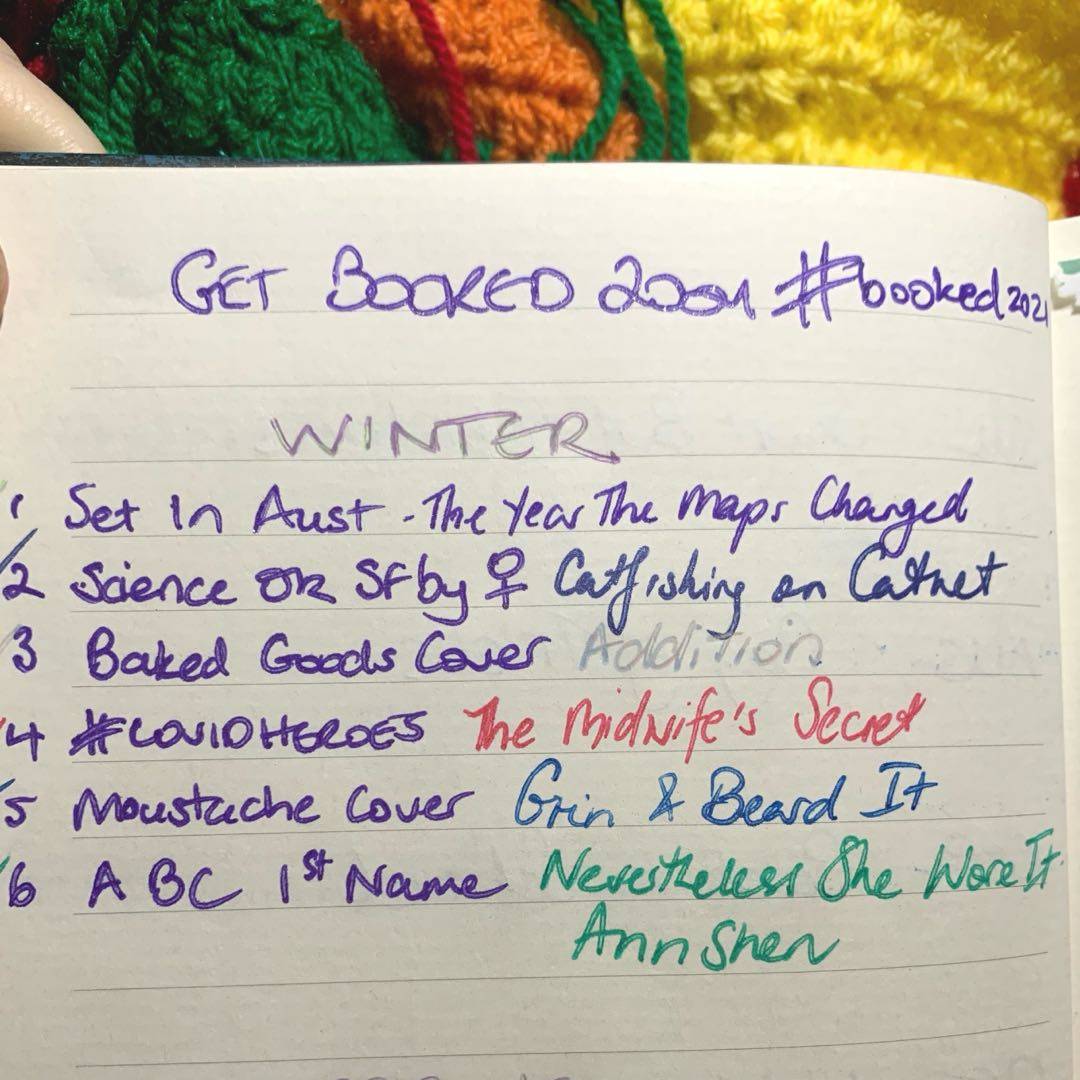 GET BOOKED 2021 #booked2021
WINTER
1 Set In Aust - The Year The Maps Changed
2 Science OR SF by ♀ Catfishing on Catnet
3 Baked Goods Cover Addition
4 #COVIDHEROES The Midwife's Secret
5 Moustache Cover Grin & Beard It
6 A BC 1st Name Nevertheless She Wore It
Ann Shen